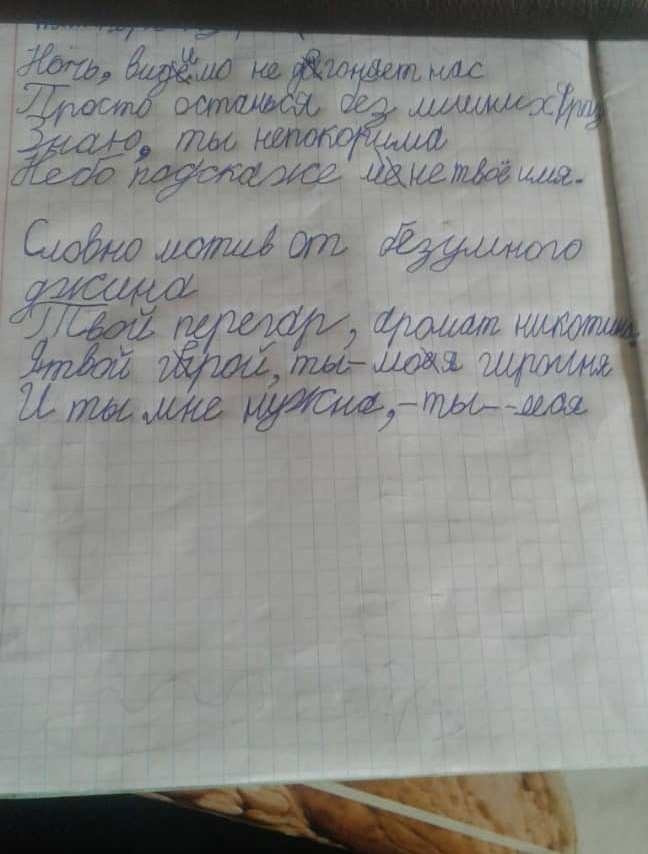 Ночь, видимо не догоняет нас
Просто останься без лишних фраз
Знаю, ты непокорима
Небо подскаже мне твоё имя.
Словно мотив от безумного
джина
Твой перегар, аромат никотина
Я твой герой, ты - моя героиня
И ты мне нужна, - ты - моя